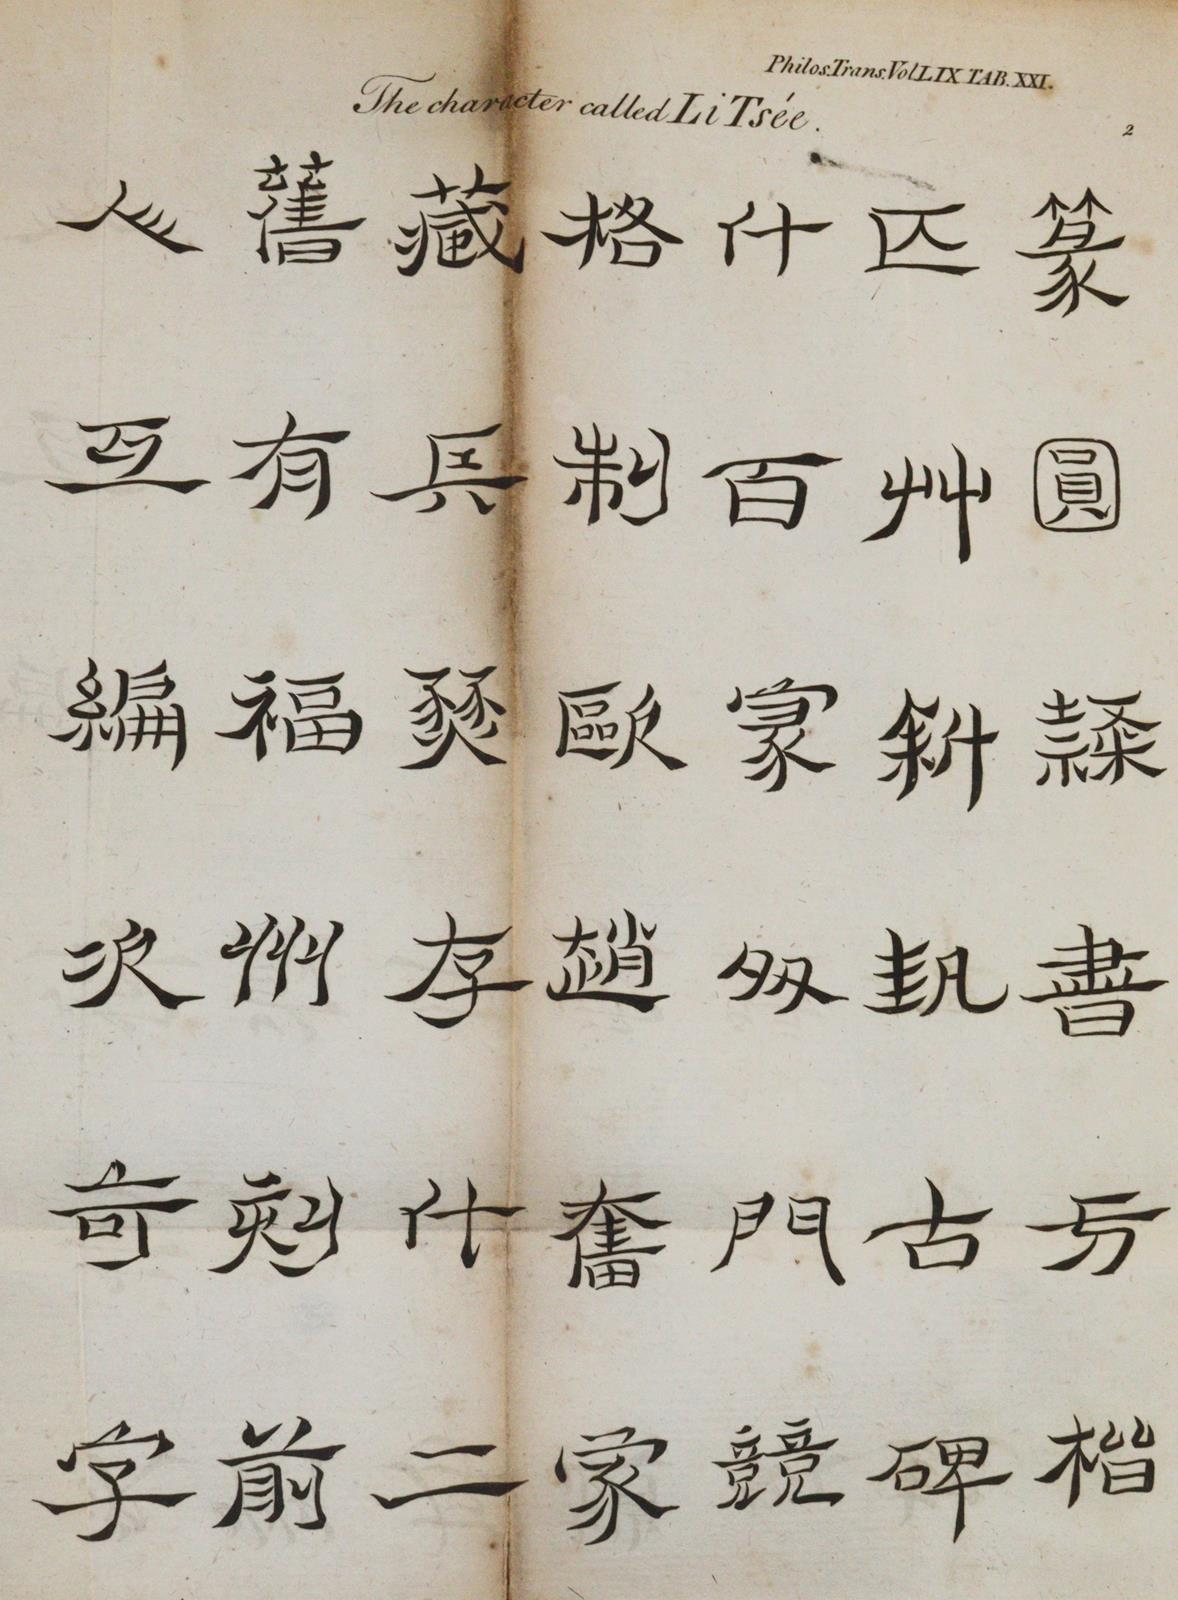 Philos. Trans. Vol. LIX TAB. XXI.
The character called Li Tsée.
2
篆圓隸書方楷
匹艸斜執古碑
什百家門競
格制歐趙奮家
藏兵燹存什二
舊有福州刻前
人互編次奇字